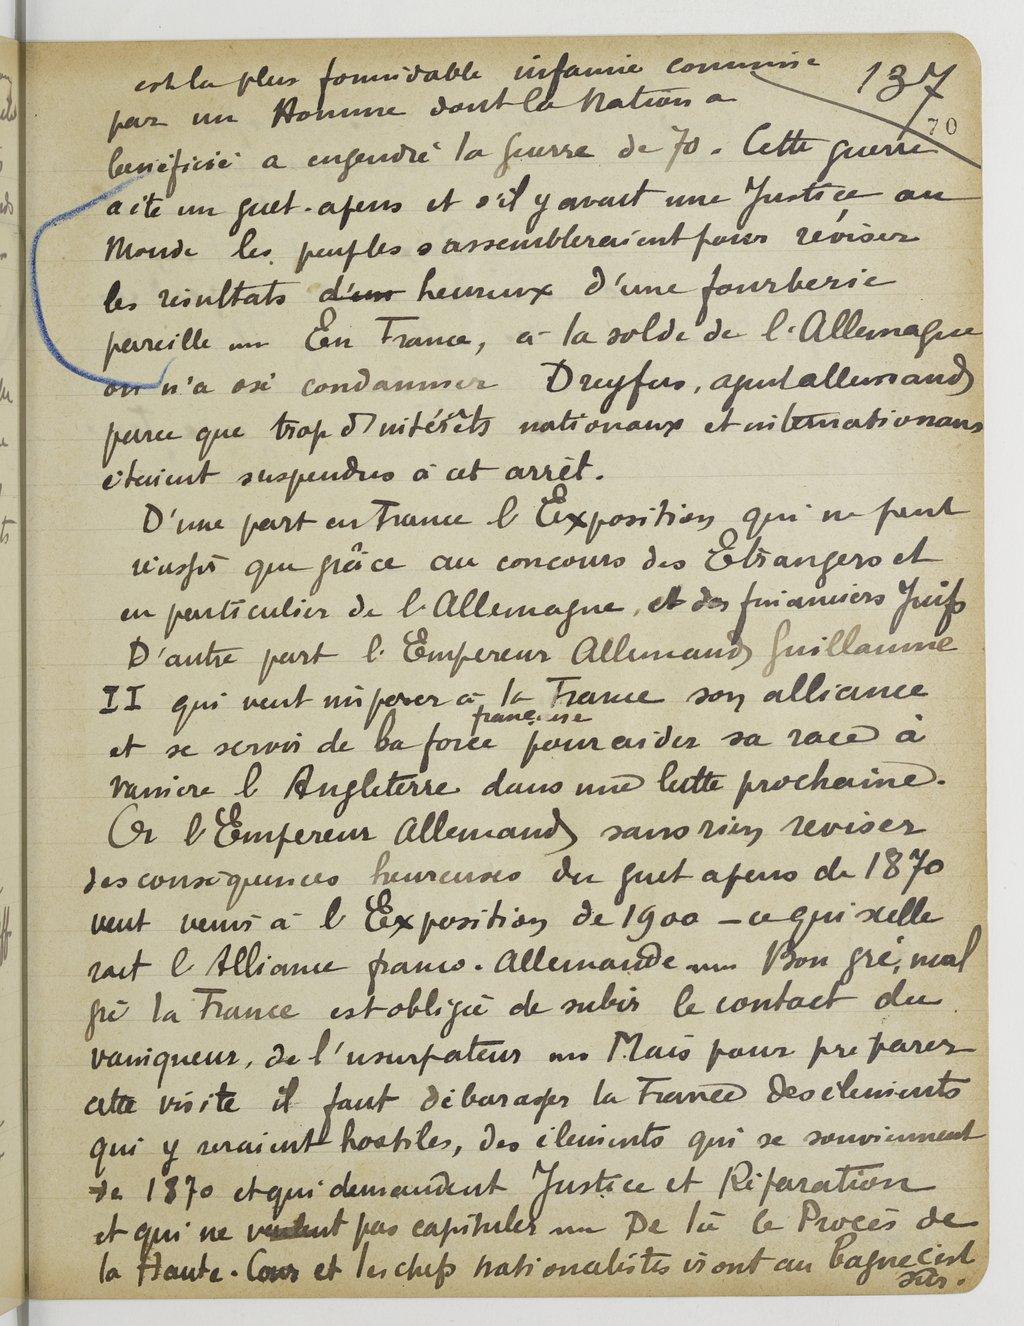 137
70
est la plus formidable infamie commise
par un Homme dont la Nation a
bénéficié a engendré la guerre de 70. Cette guerre
a été un guet-apens et s'il y avait une Justice au
Monde les peuples s'assembleraient pour réviser
les résultats d'un heureux d'une fourberie
pareille — En France, à la solde de l'Allemagne
on n'a osé condamner Dreyfus, agent allemand
parce que trop d'intérêts nationaux et internationaux
étaient suspendus à cet arrêt.
D'une part en France l'Exposition qui ne peut
réussir que grâce au concours des Etrangers et
en particulier de l'Allemagne, et des financiers Juifs
D'autre part l'Empereur Allemand Guillaume
II qui veut imposer à la France son alliance
et se servir de la force française pour aider sa race à
vaincre l'Angleterre dans une lutte prochaine.
Or l'Empereur Allemand sans rien reviser
des conséquences heureuses du guet apens de 1870
veut venir à l'Exposition de 1900 — ce qui scelle
rait l'Alliance franco-Allemande — Bon gré, mal
gré la France est obligée de subir le contact du
vainqueur, de l'usurpateur — Mais pour préparer
cette visite il faut débarasser la France des éléments
qui y seraient hostiles, des éléments qui se souviennent
de 1870 et qui demandent Justice et Réparation
et qui ne veulent pas capituler — De là le Procès de
la Haute-Cour et les chefs nationalistes iront au bagne c'est
sûr.